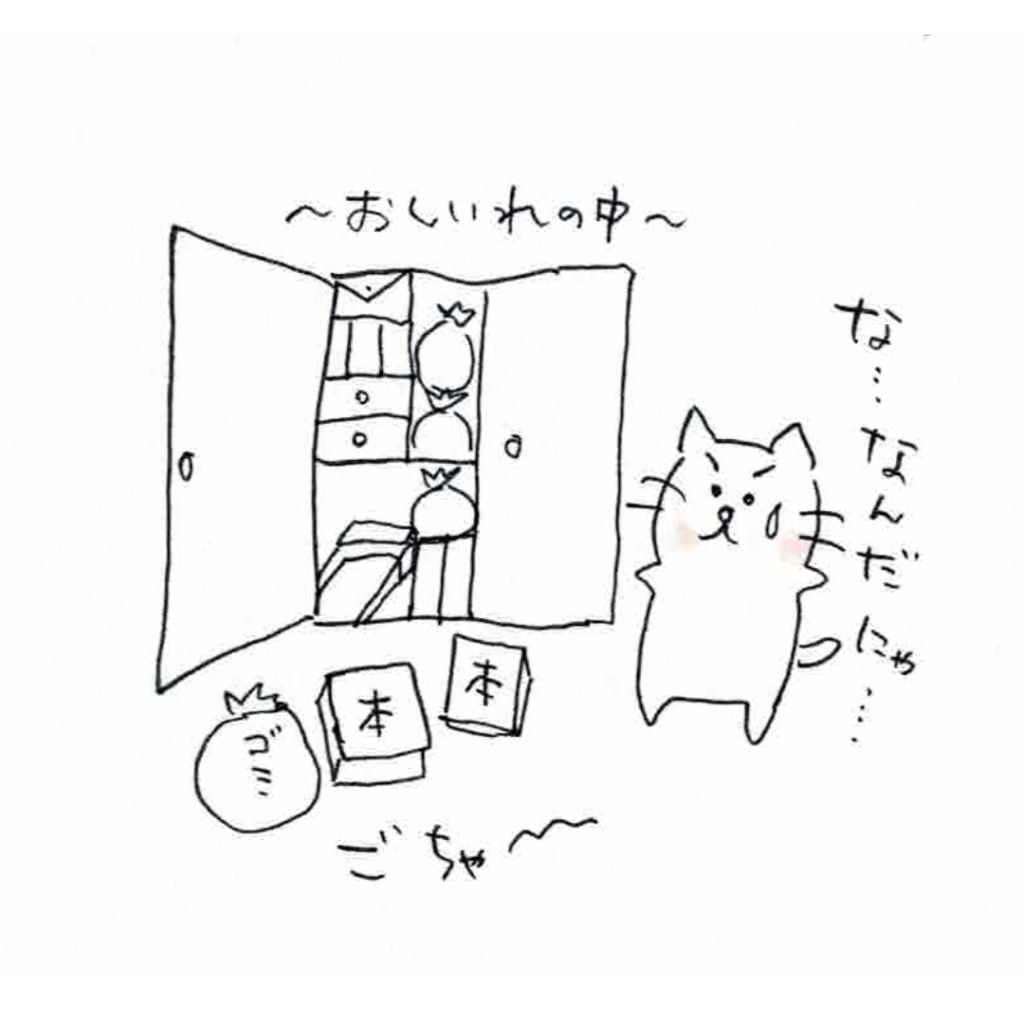 ～おしいれの中～
な…なんだにゃ…
本
本
ゴミ
ごちゃ〜